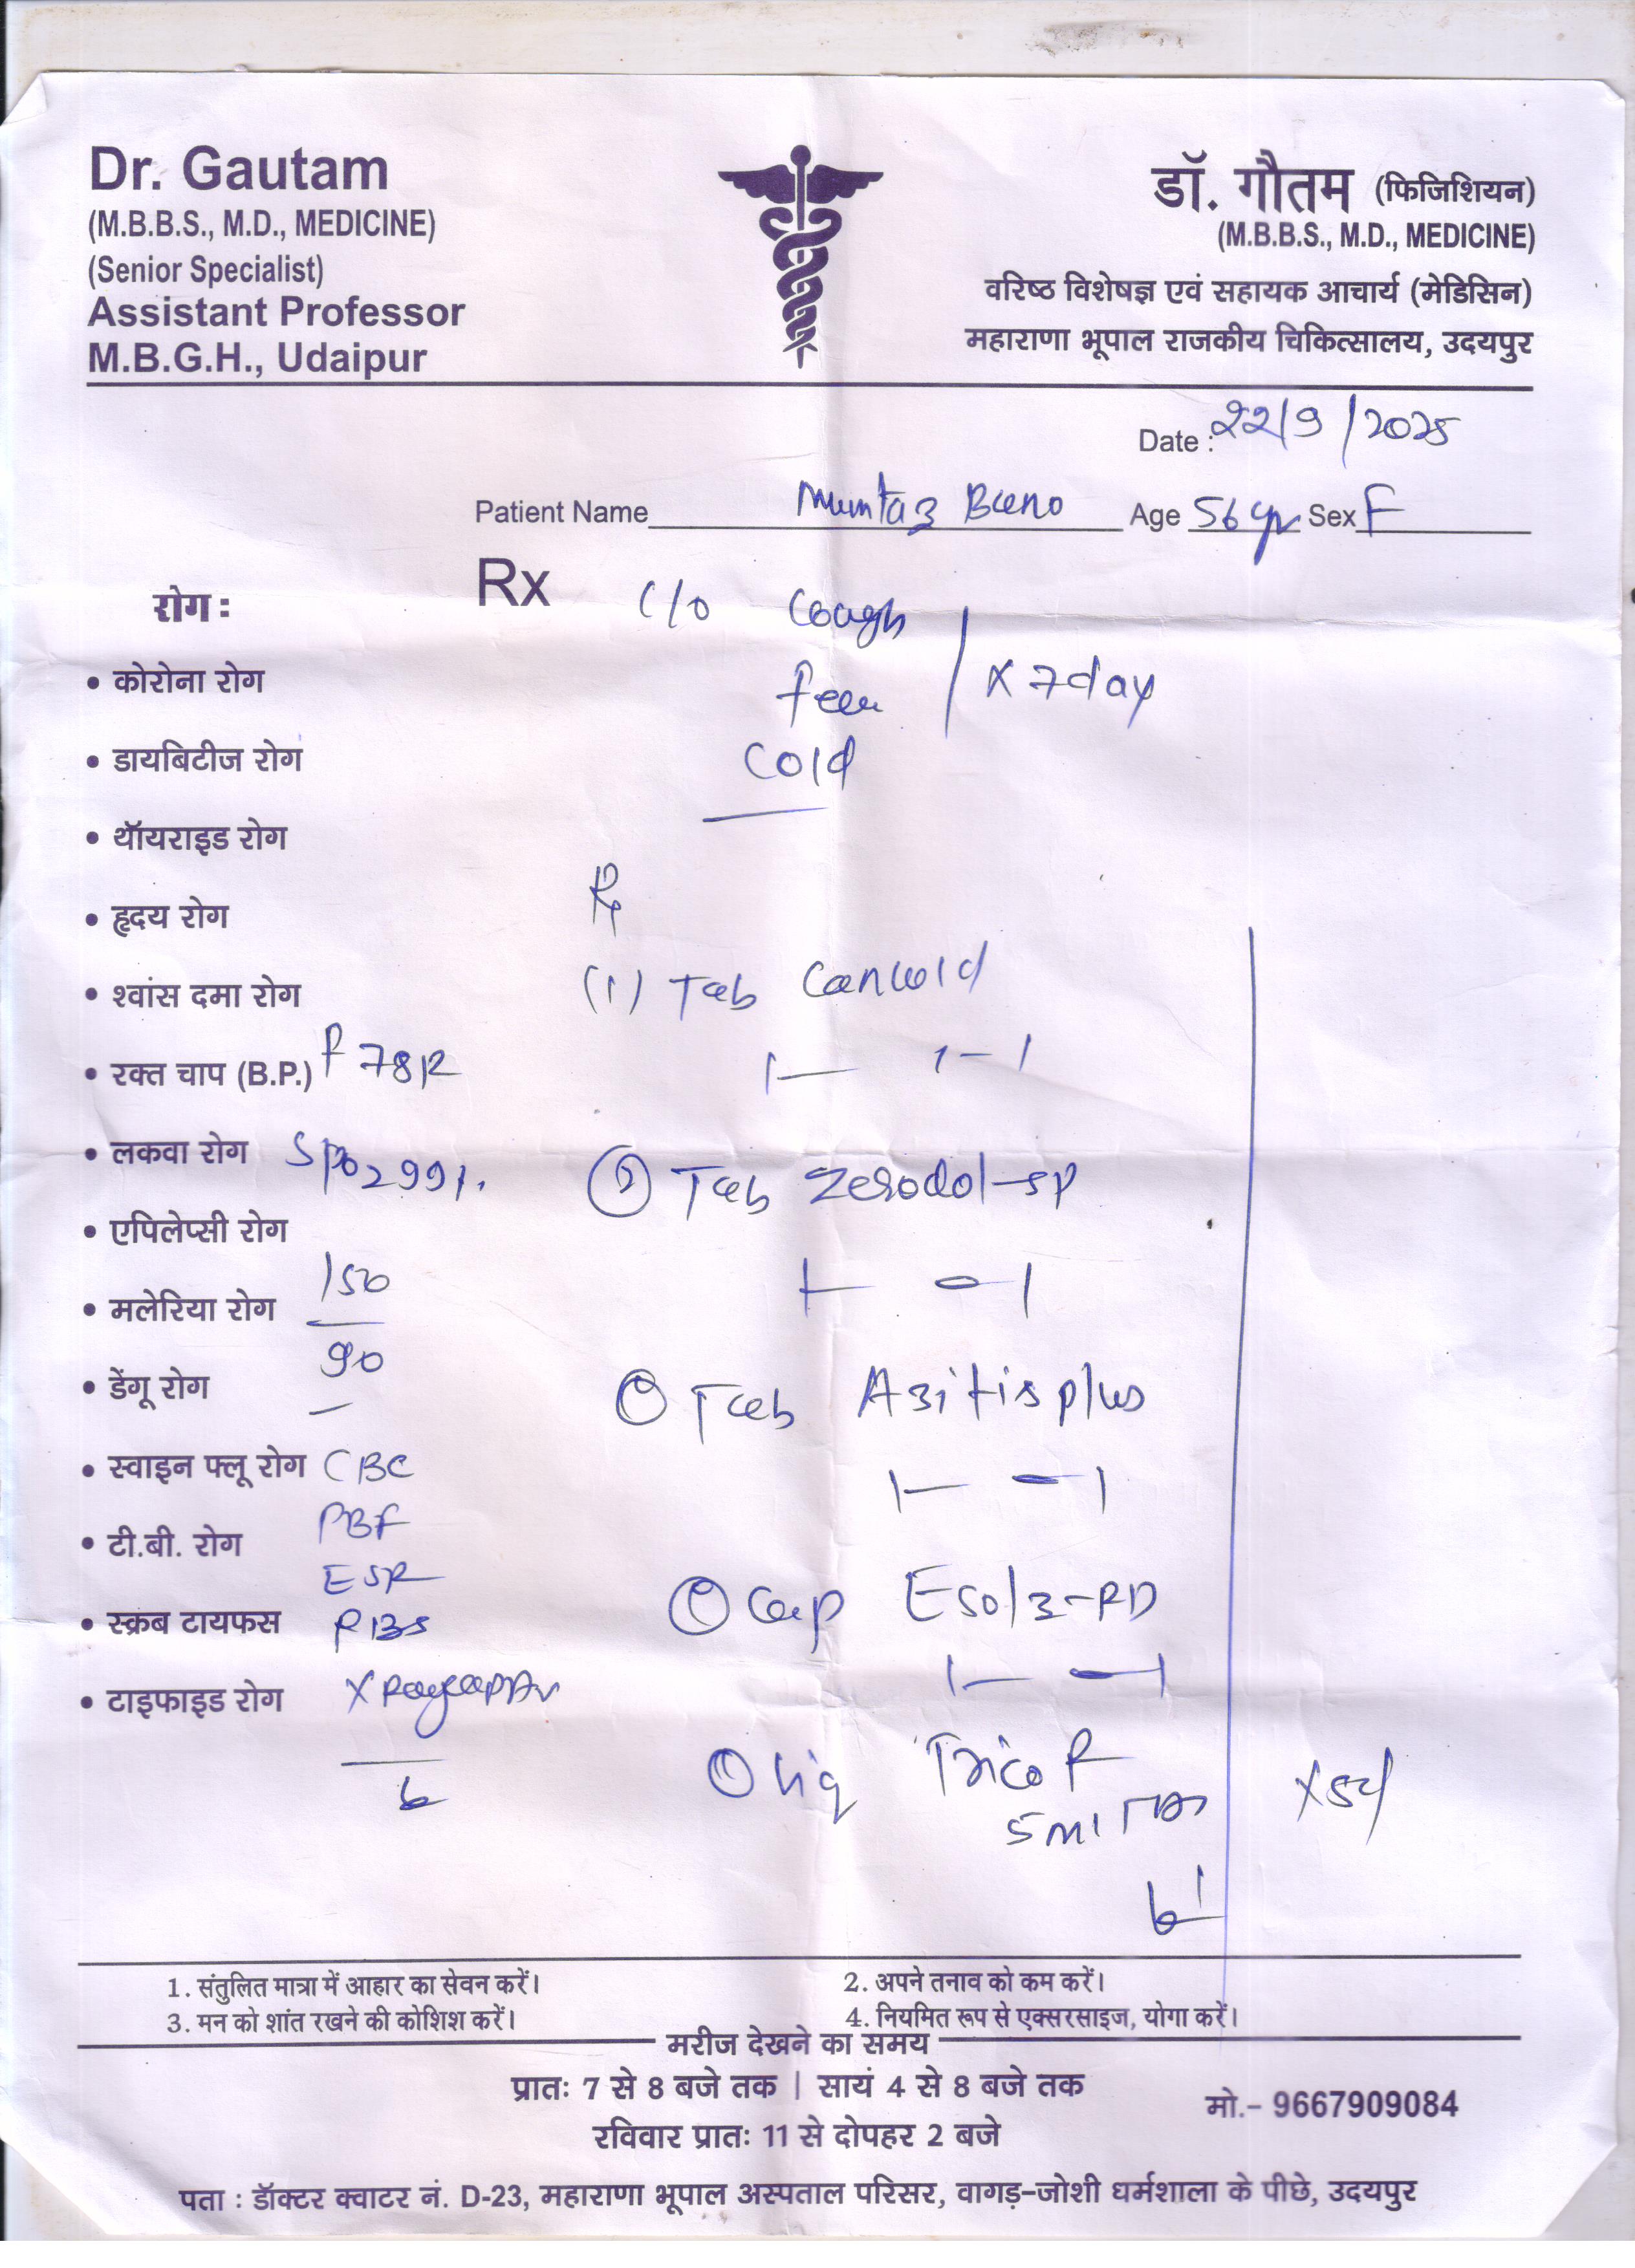 Dr. Gautam
(M.B.B.S., M.D., MEDICINE)
(Senior Specialist)
Assistant Professor
M.B.G.H., Udaipur
डॉ. गौतम (फिजिशियन)
(M.B.B.S., M.D., MEDICINE)
वरिष्ठ विशेषज्ञ एवं सहायक आचार्य (मेडिसिन)
महाराणा भूपाल राजकीय चिकित्सालय, उदयपुर
Date : 22/9/2025
Patient Name Mumtaz Bano Age 56 yr Sex F
Rx
C/o Cough
Fever
Cold
X 7day
रोग :
• कोरोना रोग
• डायबिटीज रोग
• थॉयराइड रोग
• हृदय रोग
• श्वांस दमा रोग
• रक्त चाप (B.P.) P 78 R
• लकवा रोग SPO2 99%
• एपिलेप्सी रोग
• मलेरिया रोग 150
90
• डेंगू रोग
• स्वाइन फ्लू रोग CBC
PBF
• टी.बी. रोग
ESR
• स्क्रब टायफस RBS
• टाइफाइड रोग X Ray
Rx
(1) Tab Cancold
1— 1-1
② Tab Zerodol-SP
1— 0-1
Tab Azitisplus
1— -1
Cap Esolz-RD
1— -1
Liq Trico P
5ml TDS
X5d
1. संतुलित मात्रा में आहार का सेवन करें।
2. अपने तनाव को कम करें।
3. मन को शांत रखने की कोशिश करें।
4. नियमित रूप से एक्सरसाइज, योगा करें।
मरीज देखने का समय
प्रातः 7 से 8 बजे तक | सायं 4 से 8 बजे तक
रविवार प्रातः 11 से दोपहर 2 बजे
मो.- 9667909084
पता : डॉक्टर क्वाटर नं. D-23, महाराणा भूपाल अस्पताल परिसर, वागड़-जोशी धर्मशाला के पीछे, उदयपुर